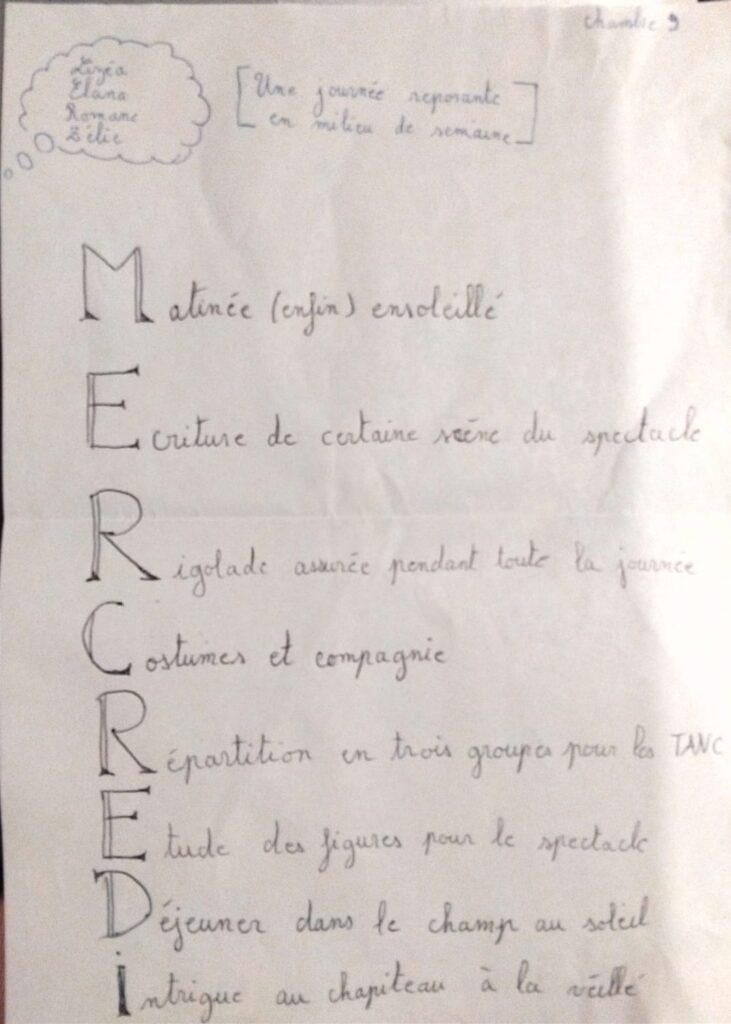 Chambre 9
Lizéa
Elana
Romane
Zélie
[Une journée reposante
en milieu de semaine]
Matinée (enfin) ensoleillé
Ecriture de certaine scène du spectacle
Rigolade assurée pendant toute la journée
Costumes et compagnie
Répartition en trois groupes pour les TANC
Etude des figures pour le spectacle
Déjeuner dans le champ au soleil
intrigue au chapiteau à la véillé